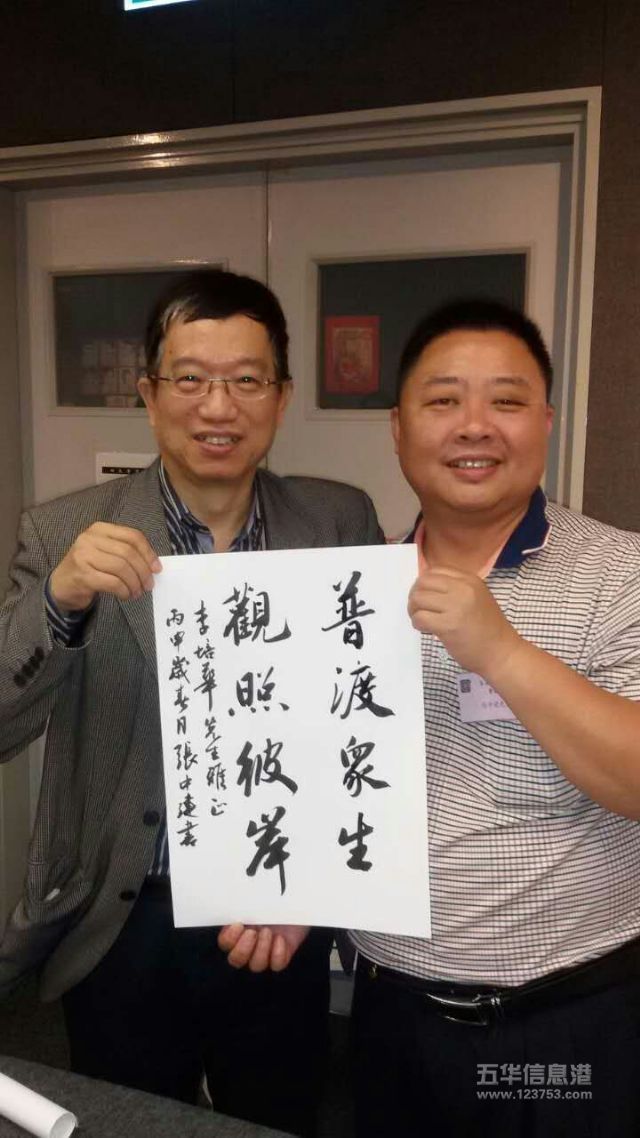 普渡衆生
觀照彼岸
李培華先生雅正
丙申歲春月張中建書
五华信息港
www.123753.com